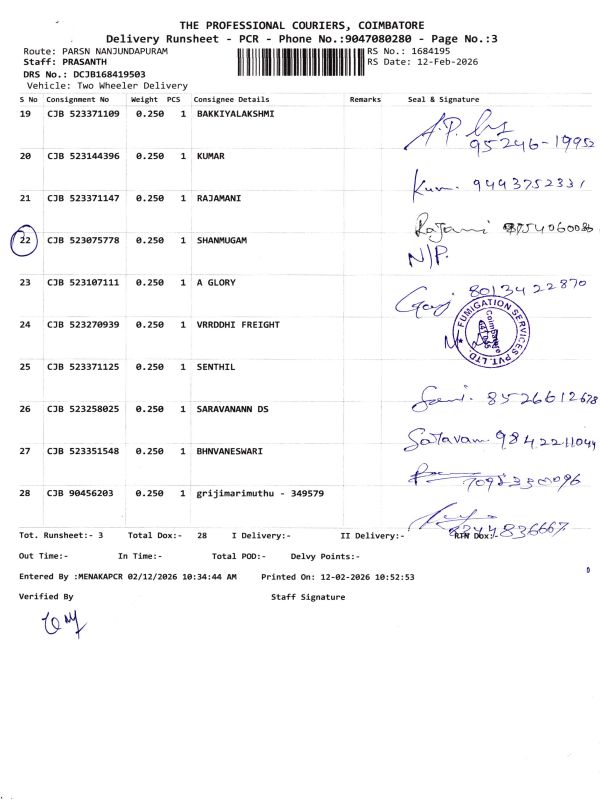 THE PROFESSIONAL COURIERS, COIMBATORE
Delivery Runsheet - PCR - Phone No.:9047080280 - Page No.:3
Route: PARSN NANJUNDAPURAM RS No.: 1684195
Staff: PRASANTH RS Date: 12-Feb-2026
DRS No.: DCJB168419503
Vehicle: Two Wheeler Delivery
S No Consignment No Weight PCS Consignee Details Remarks Seal & Signature
19 CJB 523371109 0.250 1 BAKKIYALAKSHMI
A.P.
95246-19952
20 CJB 523144396 0.250 1 KUMAR
Kum. 9443752331
21 CJB 523371147 0.250 1 RAJAMANI
Rajami 8754060086
22 CJB 523075778 0.250 1 SHANMUGAM
N/P.
23 CJB 523107111 0.250 1 A GLORY
8013422870
24 CJB 523270939 0.250 1 VRRDDHI FREIGHT
FUMIGATION SERVICES PVT. LTD.
Coimbatore
25 CJB 523371125 0.250 1 SENTHIL
8526612678
26 CJB 523258025 0.250 1 SARAVANANN DS
Saravam 9842211044
27 CJB 523351548 0.250 1 BHNVANESWARI
28 CJB 90456203 0.250 1 grijimarimuthu - 349579
8344836667
Tot. Runsheet:- 3 Total Dox:- 28 I Delivery:- II Delivery:- RTN Dox:
Out Time:- In Time:- Total POD:- Delvy Points:-
Entered By :MENAKAPCR 02/12/2026 10:34:44 AM Printed On: 12-02-2026 10:52:53
Verified By Staff Signature